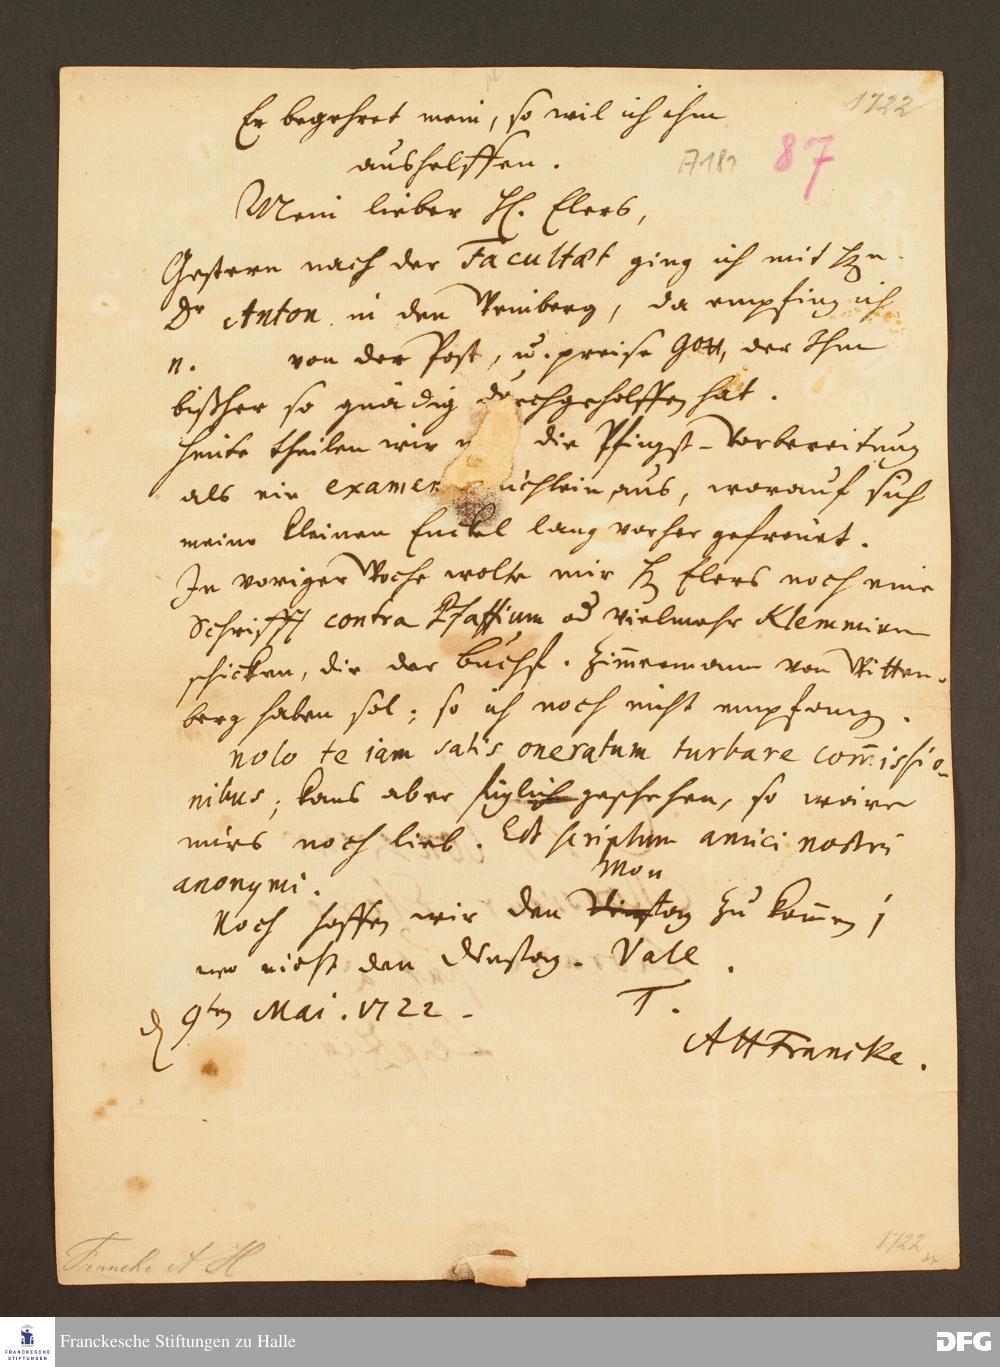 1722
Er begehret mein, so wil ich ihm
aushelffen.
A 189
87
Mein lieber H. Elers,
Gestern nach der Facultæt ging ich mit Hn.
Dr Anton in den Weinberg, da empfing ich
n. von der Post, u. preise Gott, der Ihm
bißher so gnädig durchgeholffen hat.
Heute theilen wir die Pfingst-Vorbereitung
als ein examen üchlein aus, worauf sich
meine kleinen Enckel lang vorher gefreuet.
In voriger Woche wolte mir H Elers noch eine
Schrifft contra Pfaffium od vielmehr Klemmium
schicken, die der buchf. Zim̄ermann von Witten-
berg haben sol; so ich noch nicht empfang.
Nolo te iam satis oneratum turbare com̄issio-
nibus; kans aber füglich geschehen, so wäre
mirs noch lieb. Est scriptum amici nostri
anonymi.
Mon
Noch hoffen wir den tag zu kom̄en;
wo nicht den Dinstag. Vale.
d 9ten Mai. 1722.
T.
AHFrancke.
Francke A H
1722
FRANCKESCHE
STIFTUNGEN
Franckesche Stiftungen zu Halle
DFG